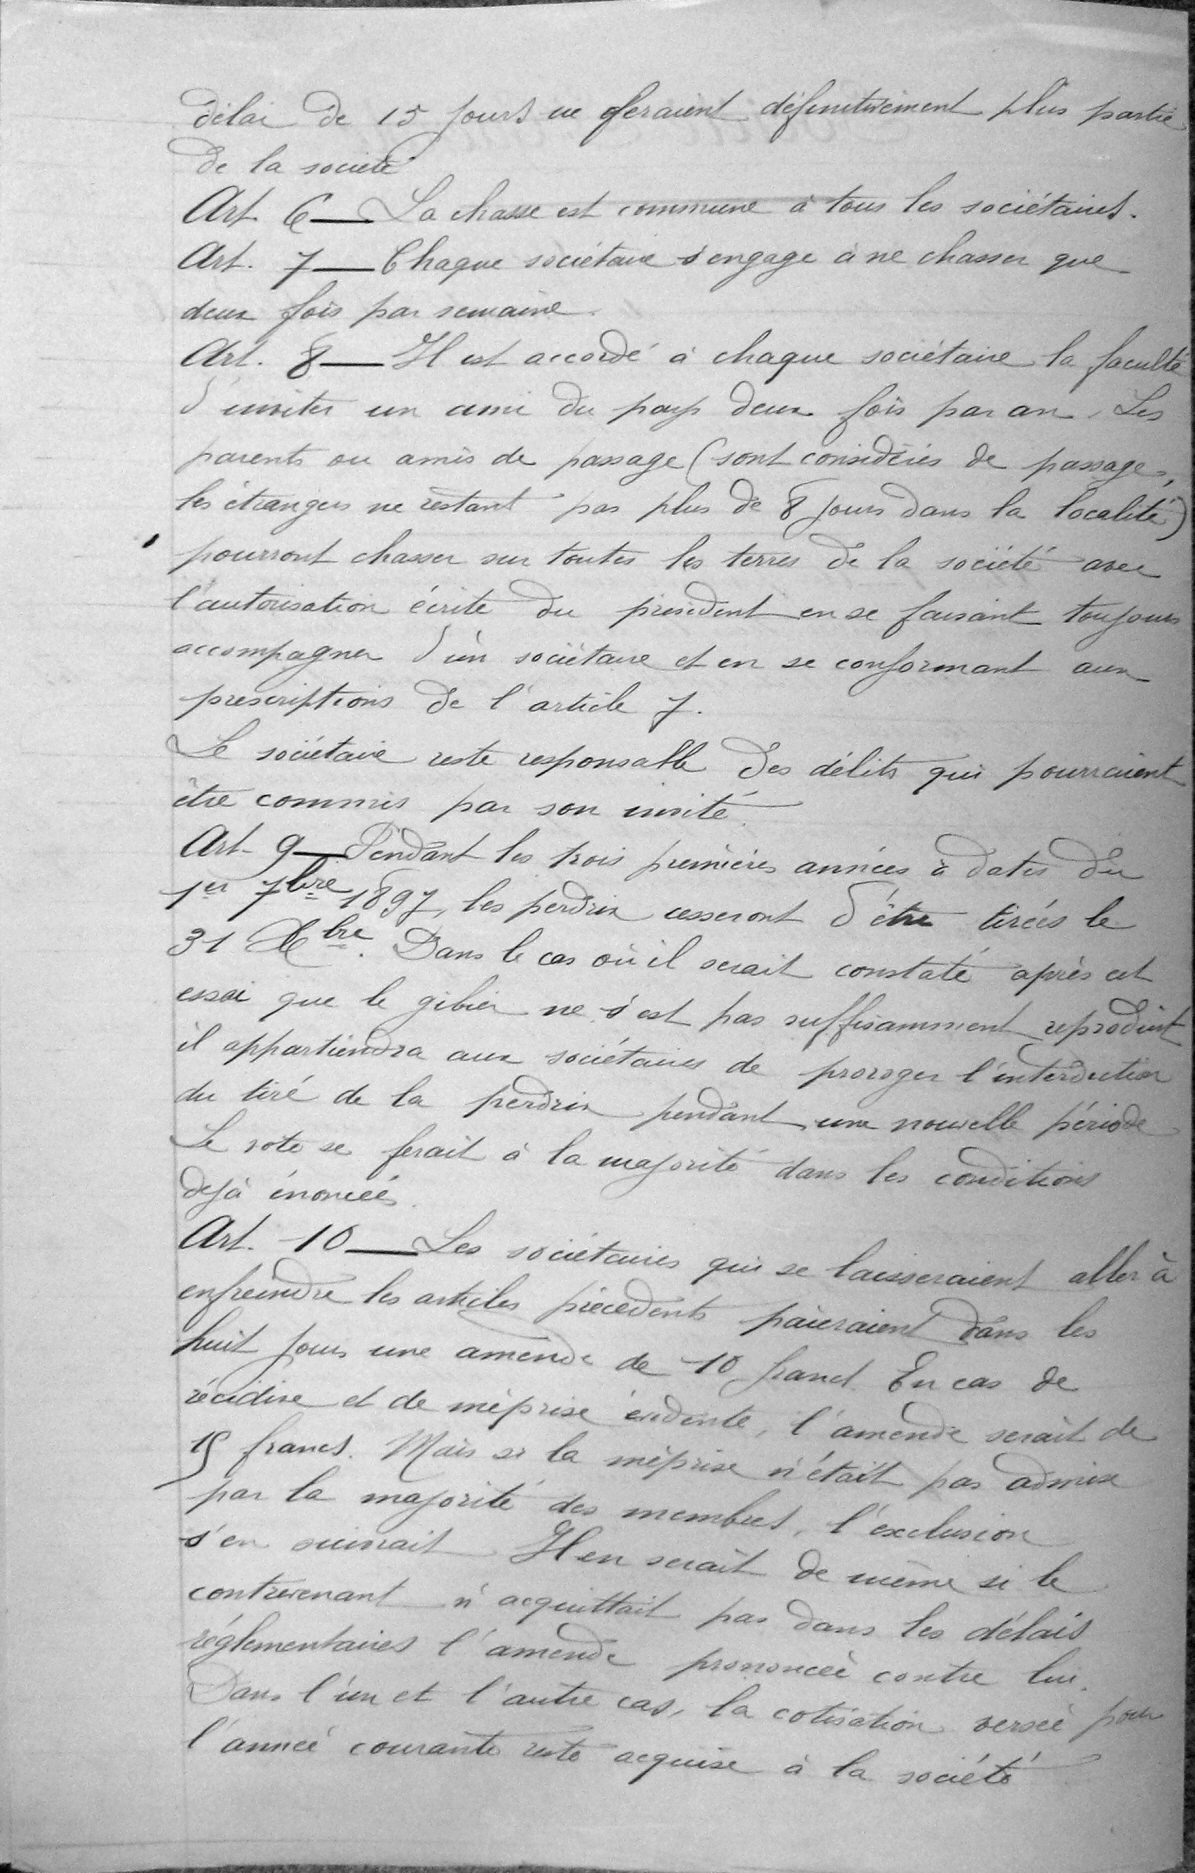 délai de 15 jours ne feraient définitivement plus partie
de la société
Art 6 — La chasse est commune à tous les sociétaires.
Art. 7 — Chaque sociétaire s'engage à ne chasser que
deux fois par semaine.
Art. 8 — Il est accordé à chaque sociétaire la faculté
d'inviter un ami du pays deux fois par an. Les
parents ou amis de passage (sont considérés de passage,
les étrangers ne restant pas plus de 8 jours dans la localité)
pourront chasser sur toutes les terres de la société avec
l'autorisation écrite du président en se faisant toujours
accompagner d'un sociétaire et en se conformant aux
prescriptions de l'article 7.
Le sociétaire reste responsable des délits qui pourraient
être commis par son invité.
Art. 9 — Pendant les trois premières années à dater du
1er 7bre 1897, les perdrix cesseront d'être tirées le
31 Xbre. Dans le cas où il serait constaté après cet
essai que le gibier ne s'est pas suffisamment reproduit
il appartiendra aux sociétaires de proroger l'interdiction
du tiré de la perdrix pendant une nouvelle période
Le vote se ferait à la majorité dans les conditions
déjà énoncées.
Art. 10 — Les sociétaires qui se laisseraient aller à
enfreindre les articles précédents paieraient dans les
huit jours une amende de 10 francs. En cas de
récidive et de méprise évidente, l'amende serait de
15 francs. Mais si la méprise n'était pas admise
par la majorité des membres, l'exclusion
s'en suivrait Il en serait de même si le
contrevenant n'acquittait pas dans les délais
réglementaires l'amende prononcée contre lui.
Dans l'un et l'autre cas, la cotisation versée pour
l'année courante reste acquise à la société